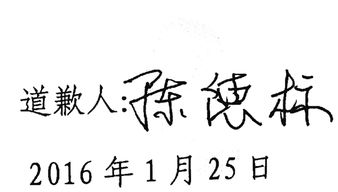 道歉人:陈德标
2016年1月25日